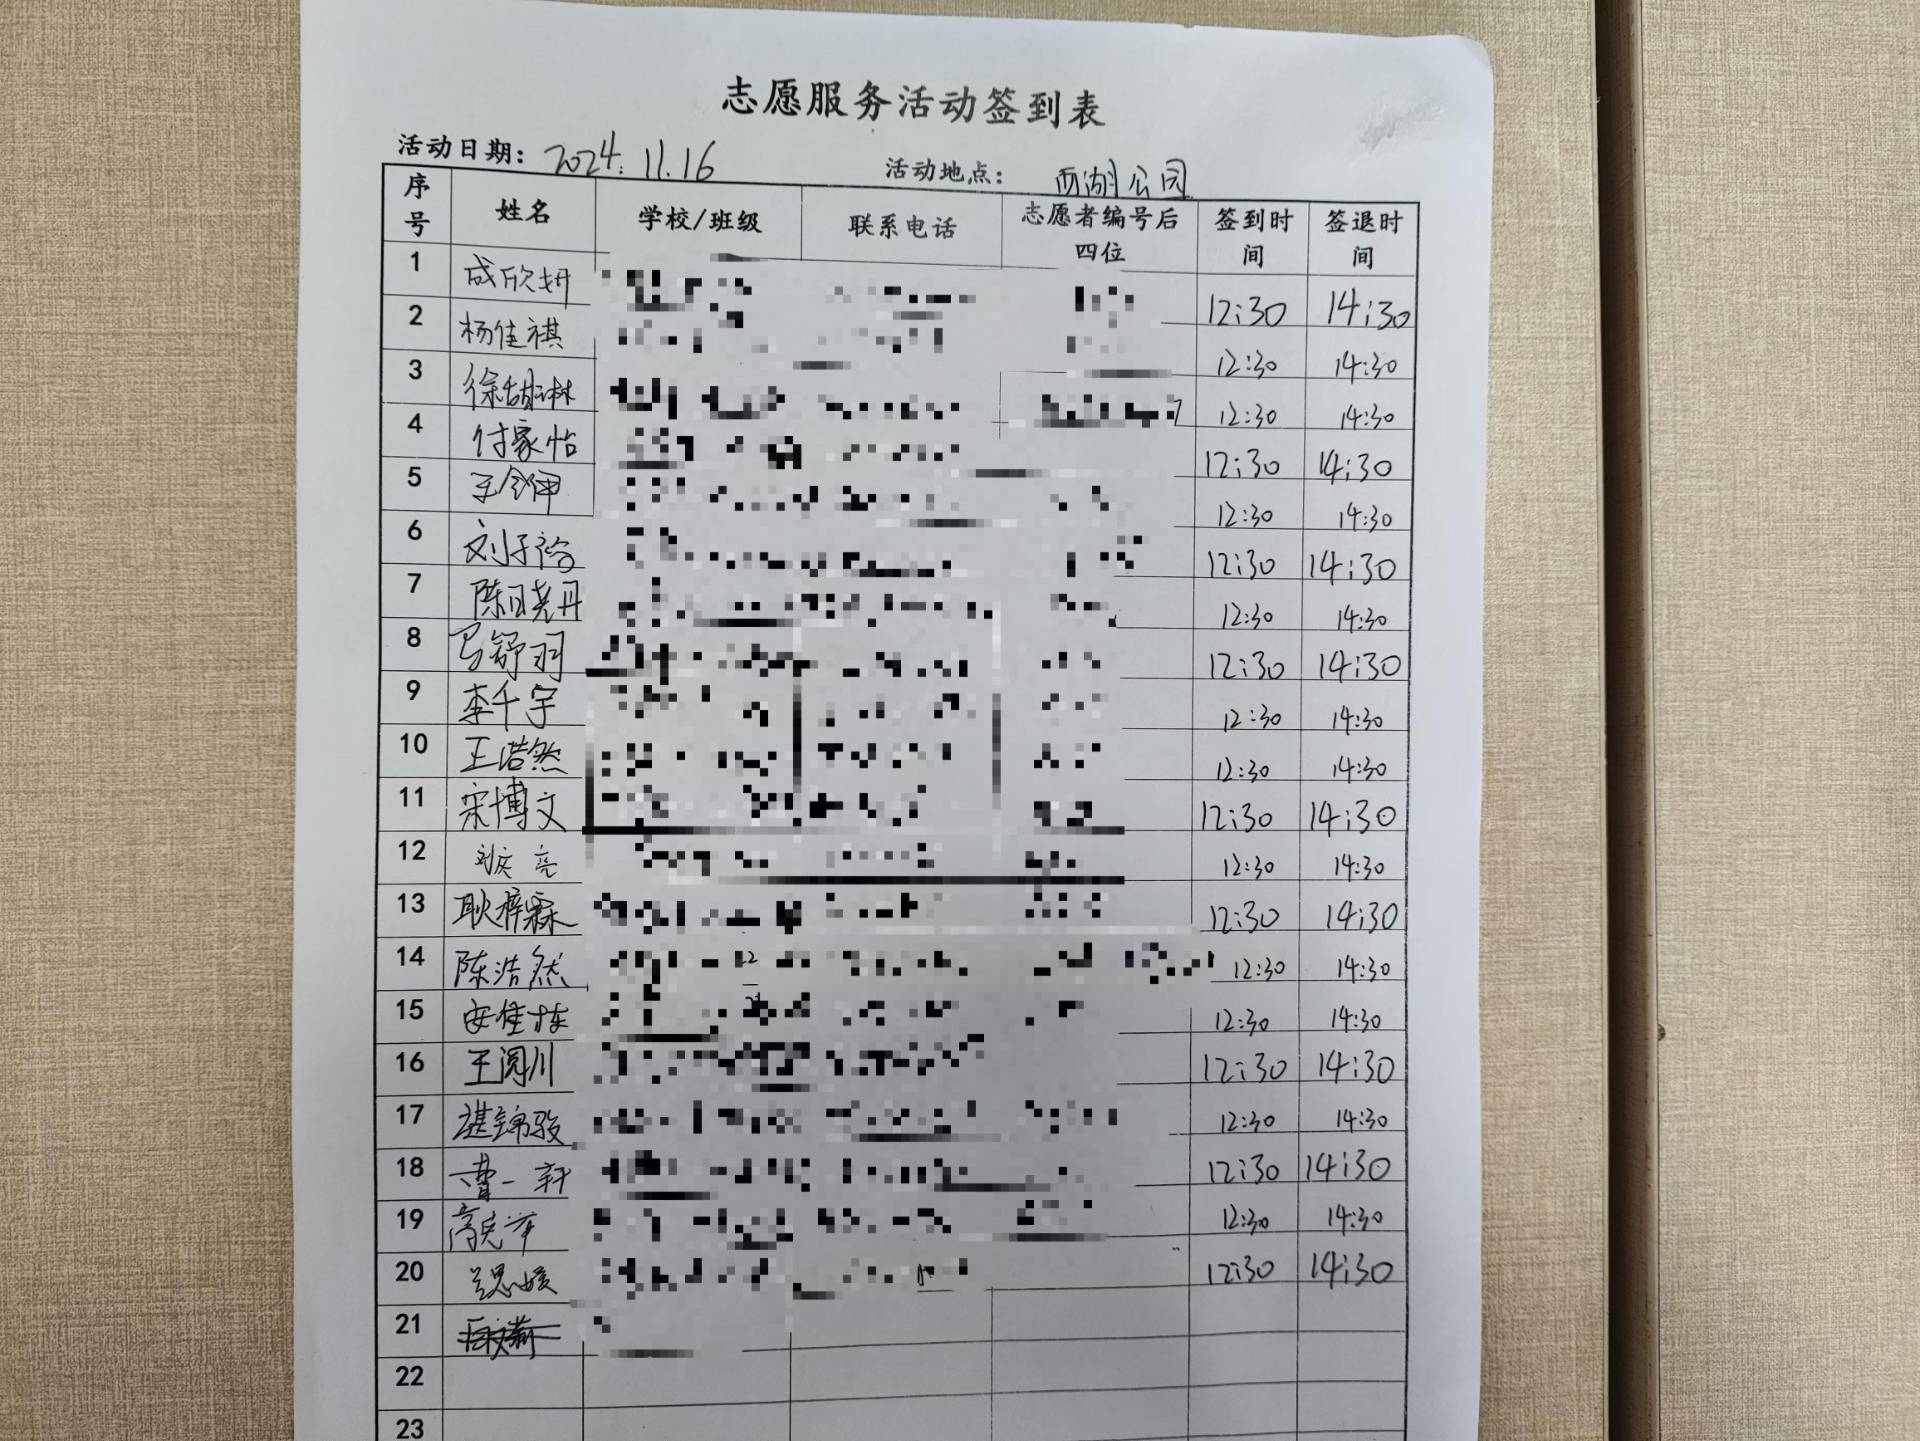 志愿服务活动签到表
活动日期: 2024.11.16 活动地点: 西湖公园
序号 姓名 学校/班级 联系电话 志愿者编号后四位 签到时间 签退时间
1 成欣妍 12:30 14:30
2 杨佳祺 12:30 14:30
3 徐胡琳 12:30 14:30
4 付家怡 12:30 14:30
5 12:30 14:30
6 刘子裕 12:30 14:30
7 12:30 14:30
8 马舒羽 12:30 14:30
9 李千宇 12:30 14:30
10 王浩然 12:30 14:30
11 宋博文 12:30 14:30
12 12:30 14:30
13 耿梓霖 12:30 14:30
14 陈浩然 12:30 14:30
15 安佳栋 12:30 14:30
16 王阅川 12:30 14:30
17 谌锦骏 12:30 14:30
18 曹一轩 12:30 14:30
19 12:30 14:30
20 12:30 14:30
21
22
23